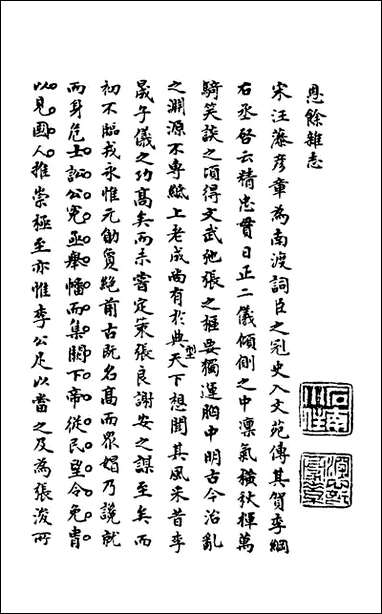 恩餘雜志
宋汪藻彥章為南渡詞臣之冠史入文苑傳其賀李綱
右丞啓云精忠貫日正二儀傾側之中凜氣橫秋揮萬
騎笑談之頃得文武弛張之極要獨運胸中明古今治亂
之淵源不專紙上老成尚有於典型天下想聞其風采昔李
晟子儀之功高矣而未嘗定策張良謝安之謀至矣而
初不臨戎永惟元勛夐絕前古既名高而眾媢乃讒就
而身危士訟公冤亟舉幡而集闕下帝從民望令免冑
以見國人推崇極至亦惟李公足以當之及為張浚所